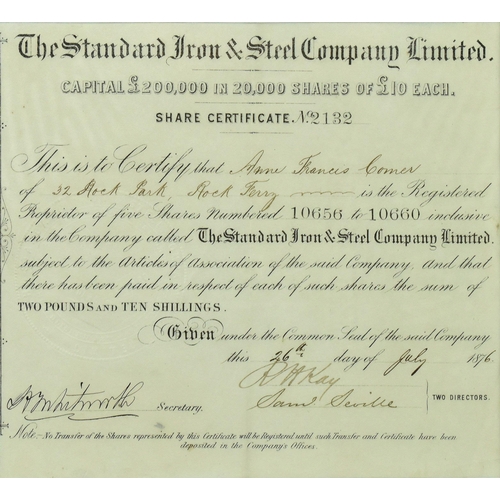 The Standard Iron & Steel Company Limited.
CAPITAL £200,000 IN 20,000 SHARES OF £10 EACH.
SHARE CERTIFICATE. No 2132
This is to Certify that Anne Frances Comer
of 32 Rock Park, Rock Ferry is the Registered
Proprietor of five Shares Numbered 10656 to 10660 inclusive
in the Company called The Standard Iron & Steel Company Limited.
subject to the Articles of Association of the said Company, And that
there has been paid in respect of each of such shares the sum of
TWO POUNDS AND TEN SHILLINGS.
Given under the Common Seal of the said Company
this 26th day of July 1876
R H Kay
A Whitworth Secretary. Saml Seville TWO DIRECTORS.
Note:- No Transfer of the Shares represented by this Certificate will be Registered until such Transfer and Certificate have been
deposited in the Company's Offices.